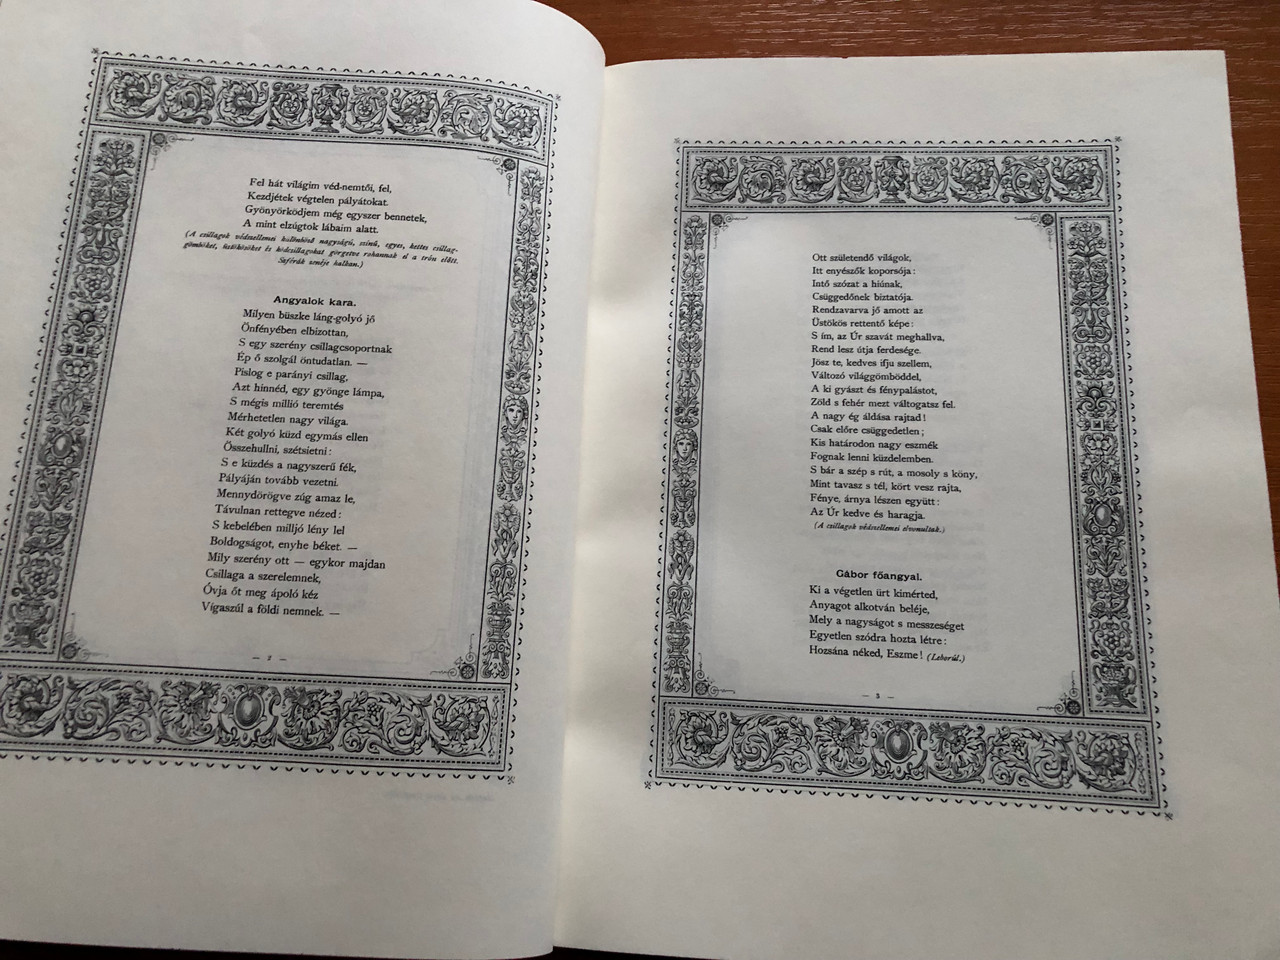 Fel hát világim véd-nemtői, fel,
Kezdjétek végtelen pályátokat.
Gyönyörködjem még egyszer bennetek,
A mint elzúgtok lábaim alatt.
(A csillagok védszellemei különböző nagyságú, színű, egyes, kettes csillag-
gömböket, üstökösöket és ködcsillagokat görgetve rohannak el a trón előtt.
Szférák zenéje halkan.)
Angyalok kara.
Milyen büszke láng-golyó jő
Önfényében elbizottan,
S egy szerény csillagcsoportnak
Ép ő szolgál öntudatlan. —
Pislog e parányi csillag,
Azt hinnéd, egy gyönge lámpa,
S mégis millió teremtés
Mérhetetlen nagy világa.
Két golyó küzd egymás ellen
Összehullni, szétsietni:
S e küzdés a nagyszerű fék,
Pályáján tovább vezetni.
Mennydörögve zúg amaz le,
Távulnan rettegve nézed:
S kebelében milljó lény lel
Boldogságot, enyhe béket. —
Mily szerény ott — egykor majdan
Csillaga a szerelemnek,
Óvja őt meg ápoló kéz
Vígaszúl a földi nemnek. —
— 2 —
Ott születendő világok,
Itt enyészők koporsója:
Intő szózat a hiúnak,
Csüggedőnek biztatója.
Rendzavarva jő amott az
Üstökös rettentő képe:
S ím, az Úr szavát meghallva,
Rend lesz útja ferdesége.
Jösz te, kedves ifju szellem,
Változó világgömböddel,
A ki gyászt és fénypalástot,
Zöld s fehér mezt váltogatsz fel.
A nagy ég áldása rajtad!
Csak előre csüggedetlen;
Kis határodon nagy eszmék
Fognak lenni küzdelemben.
S bár a szép s rút, a mosoly s köny,
Mint tavasz s tél, kört vesz rajta,
Fénye, árnya lészen együtt:
Az Úr kedve és haragja.
(A csillagok védszellemei elvonultak.)
Gábor főangyal.
Ki a végetlen ürt kimérted,
Anyagot alkotván beléje,
Mely a nagyságot s messzeséget
Egyetlen szódra hozta létre:
Hozsána néked, Eszme! (Leborúl.)
— 3 —